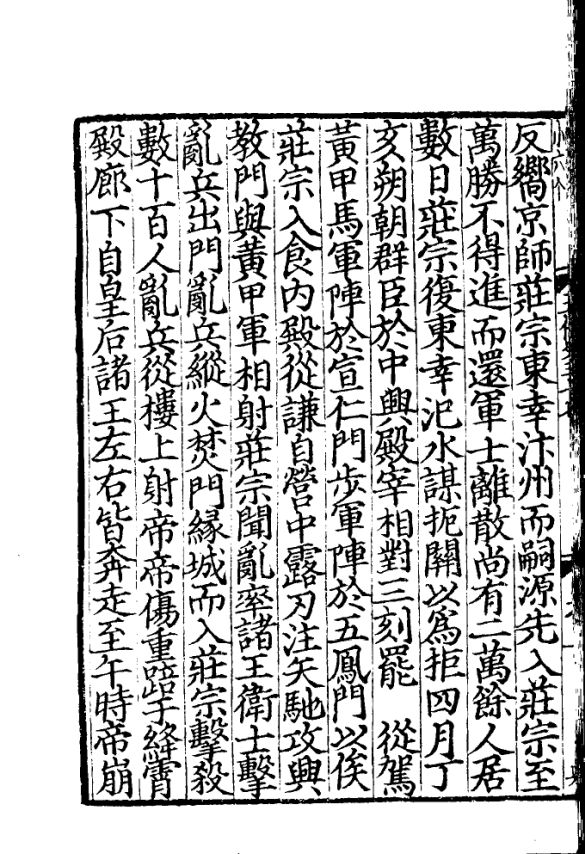 反嚮京師莊宗東幸汴州而嗣源先入莊宗至
萬勝不得進而還軍士離散尚有二萬餘人居
數日莊宗復東幸汜水謀扼關以爲拒四月丁
亥朔朝群臣於中興殿宰相對三刻罷　從駕
黃甲馬軍陣於宣仁門步軍陣於五鳳門以俟
莊宗入食內殿從謙自營中露刃注矢馳攻興
教門與黃甲軍相射莊宗聞亂率諸王衛士擊
亂兵出門亂兵縱火焚門緣城而入莊宗擊殺
數十百人亂兵從樓上射帝帝傷重踣于絳霄
殿廊下自皇后諸王左右皆奔走至午時帝崩